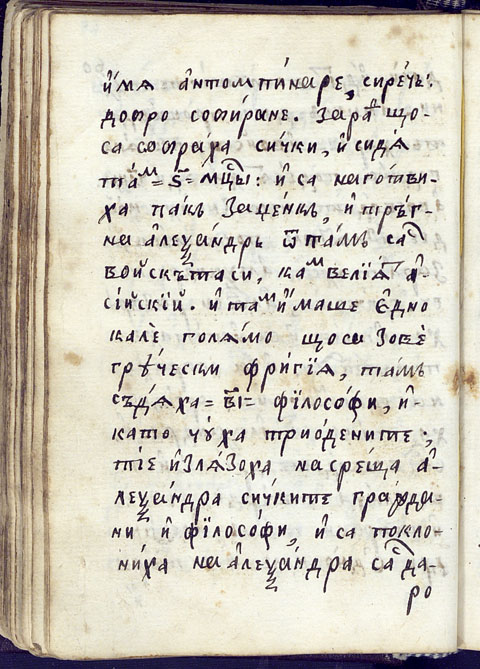 и҆́мѧ а҆нтомпи́наре, сирѣ́чь:
добро собира́не. Зара́д що-
са собраха си́чки, и҆ сидѧ́
та́м =ѕ҃= мцⷭ҇ы: и҆ са наготви-
ха пакъ За менкъ, и҆ трьг-
на але́ѯа́ндръ ѿ тамъ саⷭ
войскътаси, каⷨ велїѧ̀ а҆-
сі́йскїй. и҆ таⷨ и҆́маше є҆дно
калѐ голѧ́мо щоса Зовѐ
гру́чески фри́гїѧ, тамъ
съдѧ́ха =в҃і= фїлосо́фи, и҆-
като чу́ха триоде́ните;
ті́е и҆злѧ́Зоха насре́ща а҆-
леѯа́ндра сичките гражда-
ни и҆ фїлосо́фи, и҆ са покло-
ни́ха на а҆леѯа́ндра саⷭ да-
ро